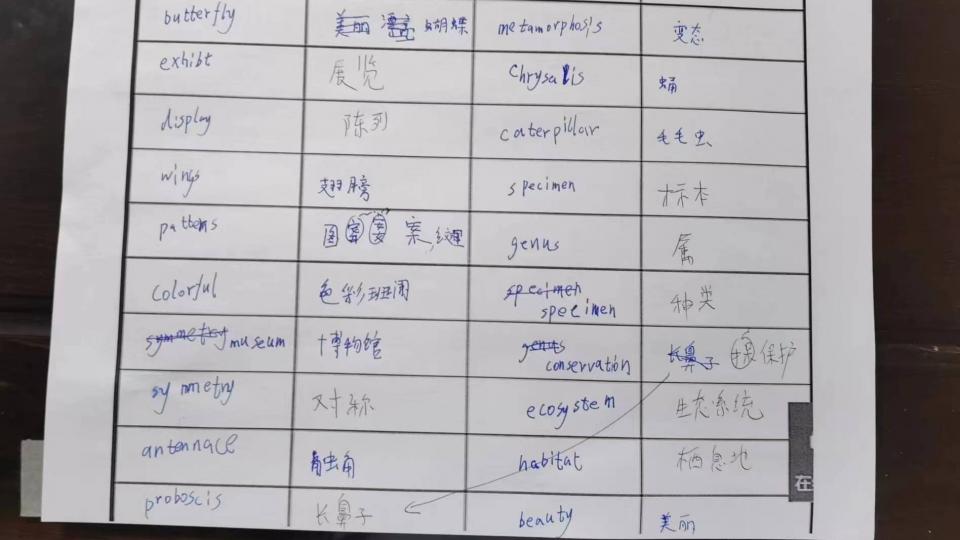 butterfly 蝴蝶 metamorphosis 变态
exhibt 展览 chrysalis 蛹
display 陈列 caterpillar 毛毛虫
wings 翅膀 specimen 标本
patterns 图案,纹理 genus 属
colorful 色彩斑斓 specimen
specimen 种类
symmetry museum 博物馆 genus
conservation 长鼻子 保护
symmetry 对称 ecosystem 生态系统
antennace 触角 habitat 栖息地
proboscis 长鼻子 beauty 美丽
在